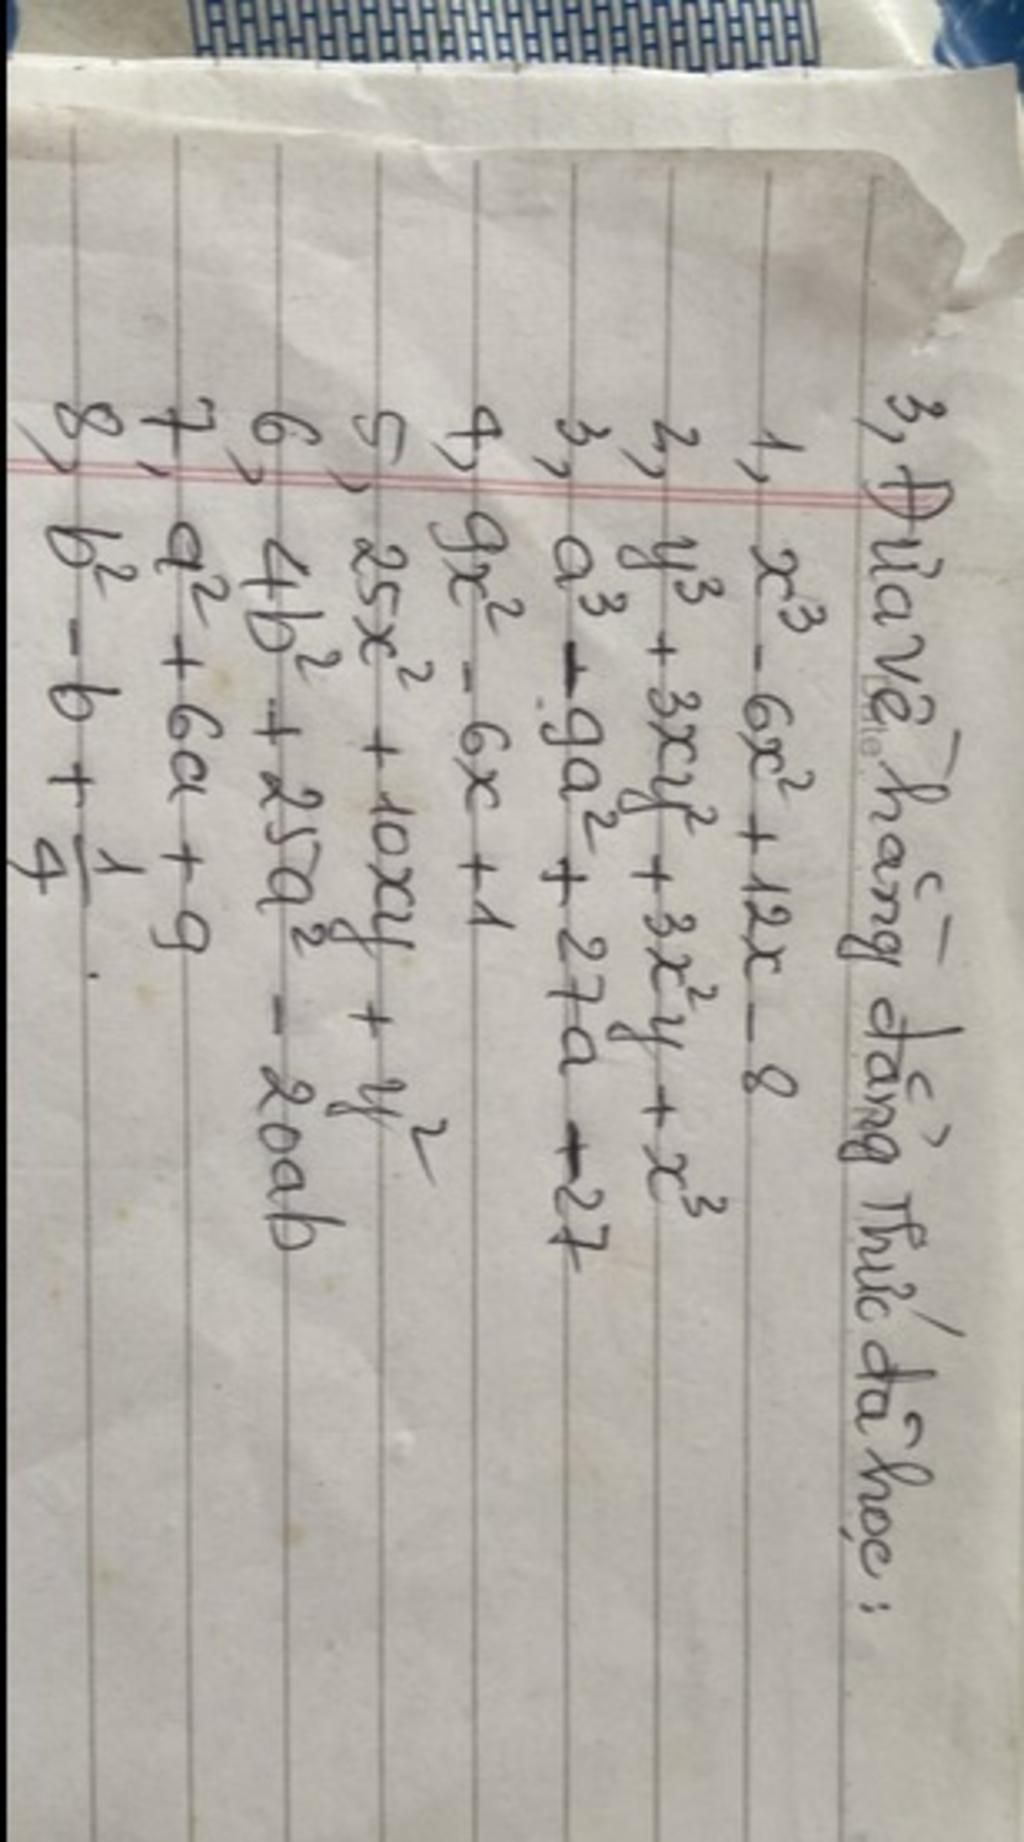 3, Đưa về hằng đẳng thức đã học:
1, x³ - 6x² + 12x - 8
2, y³ + 3xy² + 3x²y + x³
3, a³ - 9a² + 27a - 27
4, 9x² - 6x + 1
5, 25x² + 10xy + y²
6, 4b² + 25a² - 20ab
7, a² + 6a + 9
8, b² - b + 1/4.